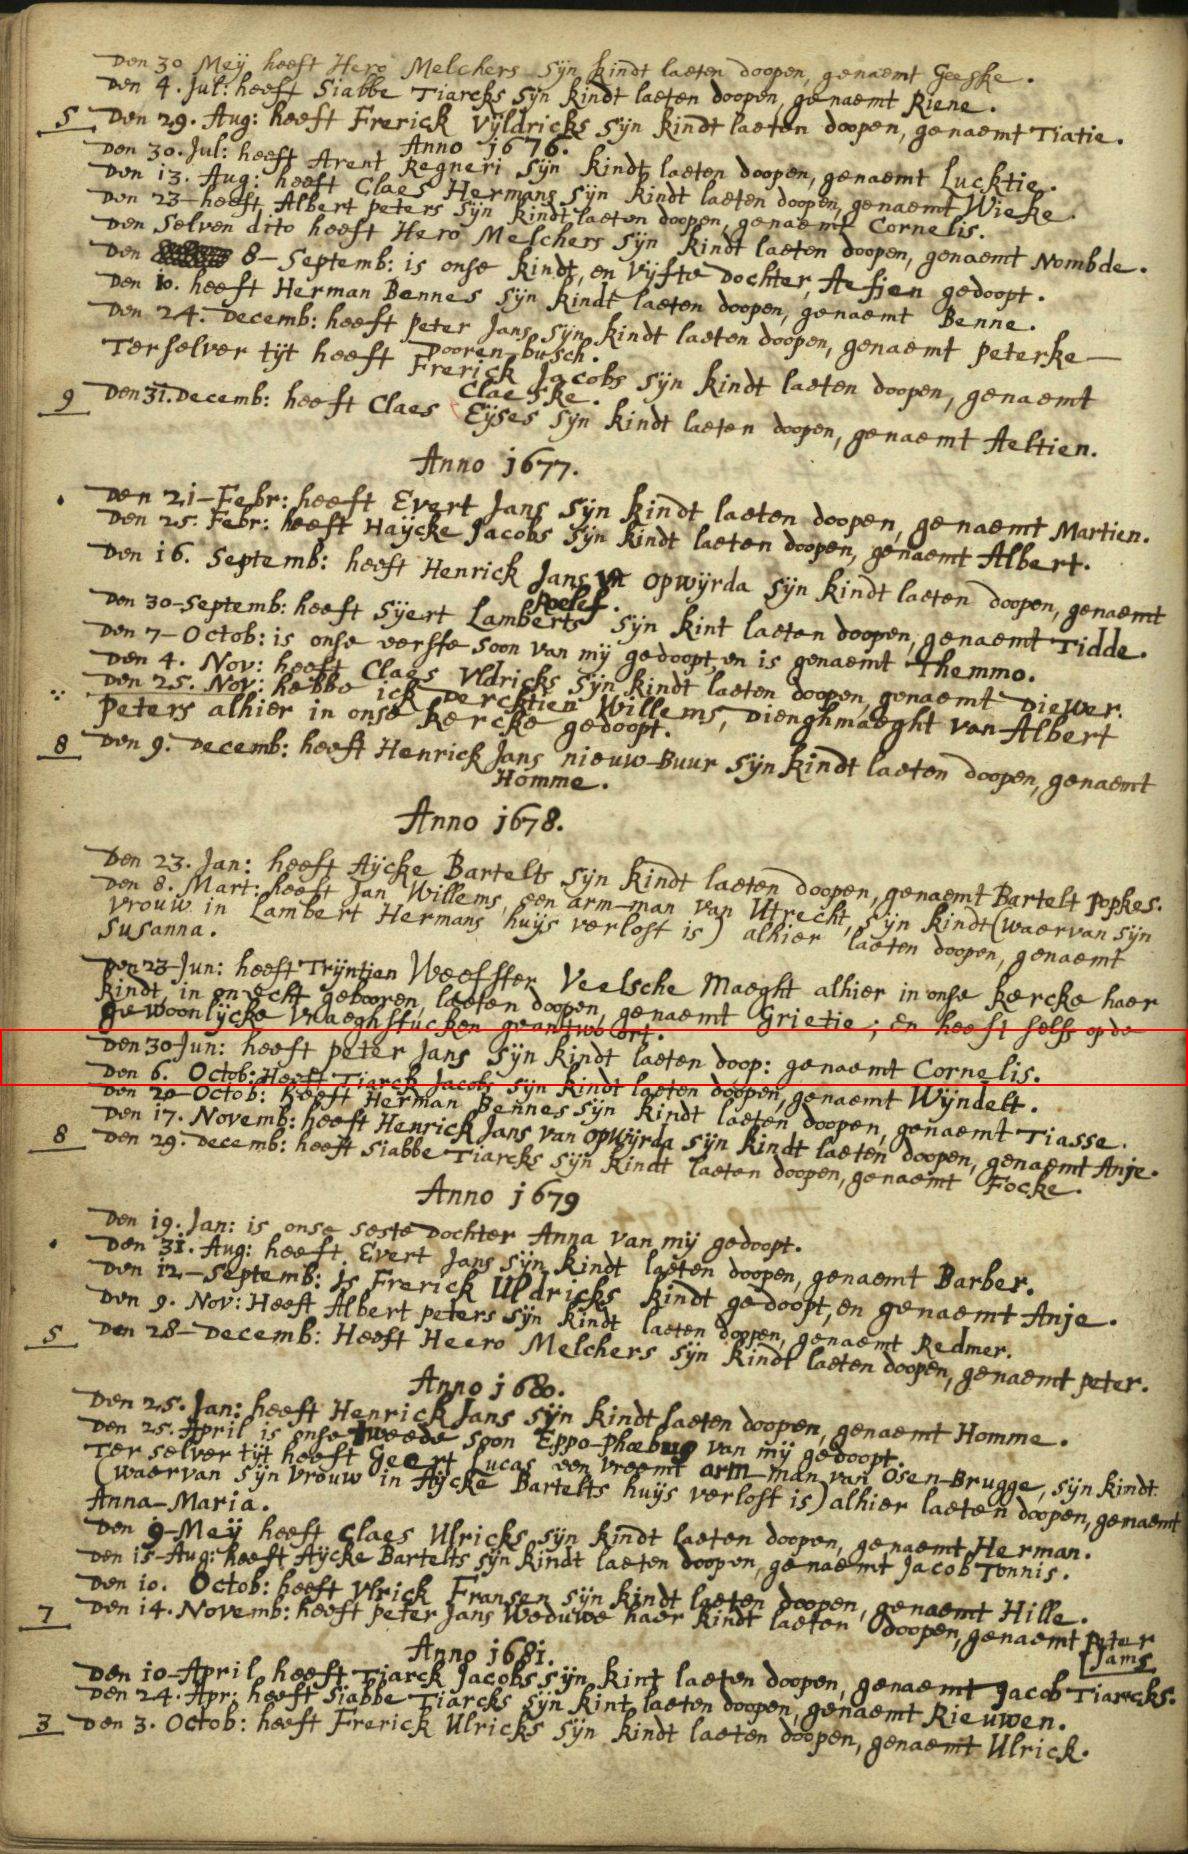 Den 30 Meÿ heeft Hero Melchers sÿn kindt laeten doopen, genaemt Geeske.
Den 4. Jul: heeft Siabbe Tiarcks sÿn kindt laeten doopen, genaemt Riene.
5 Den 29. Aug: heeft Frerick Vÿldricks sÿn kindt laeten doopen, genaemt Tiatie.
Anno 1676.
Den 30. Jul: heeft Arent Regneri sÿn kindt laeten doopen, genaemt Lucktie.
Den 13. Aug: heeft Claes Hermans sÿn kindt laeten doopen, genaemt Wieke.
Den 23 heeft Albert peters sÿn kindt laeten doopen, genaemt Cornelis.
Den selven dito heeft Hero Melchers sÿn kindt laeten doopen, genaemt Nombde.
Den 8-Septemb: is onse kindt, en vÿfte Dochter, Aefjen gedoopt.
Den 10. heeft Herman Bennes sÿn kindt laeten doopen, genaemt Benne.
Den 24. Decemb: heeft peter Jans sÿn kindt laeten doopen, genaemt peterke—
Dooren-busch.
Terselver tÿt heeft Frerick Jacobs sÿn kindt laeten doopen, genaemt
Claeske.
9 Den 31. Decemb: heeft Claes Eÿses sÿn kindt laeten doopen, genaemt Aeltien.
Anno 1677.
Den 21-Febr: heeft Evert Jans sÿn kindt laeten doopen, genaemt Martien.
Den 25. Febr: heeft Haÿcke Jacobs sÿn kindt laeten doopen, genaemt Albert.
Den 16. Septemb: heeft Henrick Jans opwÿrda sÿn kindt laeten doopen, genaemt
Roelef.
Den 30-Septemb: heeft Sÿert Lamberts sÿn kint laeten doopen, genaemt Tidde.
Den 7-Octob: is onse eerste soon van mÿ gedoopt, en is genaemt Themmo.
Den 4. Nov: heeft Claes Vldricks sÿn kindt laeten doopen, genaemt Diewer.
Den 25. Nov: hebbe ick Dercktien Willems, Dienghmaeght van Albert
Peters alhier in onse kercke gedoopt.
8 Den 9. Decemb: heeft Henrick Jans nieuw-Buur sÿn kindt laeten doopen, genaemt
Homme.
Anno 1678.
Den 23. Jan: heeft Aÿcke Bartelts sÿn kindt laeten doopen, genaemt Bartelt Popkes.
Den 8. Mart: heeft Jan Willems, een arm-man van Utrecht, sÿn kindt (waervan sÿn
vrouw in Lambert Hermans huÿs verlost is) alhier laeten doopen, genaemt
Susanna.
Den 23-Jun: heeft Trÿntjen Veelsche Maeght alhier in onse kercke haer
kindt, in onecht gebooren, laeten doopen, genaemt Grietie; en heeft selfs op de
gewoonlÿcke vraeghstucken geantwoort.
Den 30-Jun: heeft peter Jans sÿn kindt laeten doop: genaemt Cornelis.
Den 6. Octob: Heeft Tiarck Jacobs sÿn kindt laeten doopen, genaemt Wÿndelt.
Den 20-Octob: heeft Herman Bennes sÿn kindt laeten doopen, genaemt Tiasse.
Den 17. Novemb: heeft Henrick Jans van opwÿrda sÿn kindt laeten doopen, genaemt Anje.
8 Den 29. Decemb: heeft Siabbe Tiarcks sÿn kindt laeten doopen, genaemt Focke.
Anno 1679
Den 19. Jan: is onse seste Dochter Anna van mÿ gedoopt.
Den 31. Aug: heeft Evert Jans sÿn kindt laeten doopen, genaemt Barber.
Den 12-Septemb: is Frerick Uldricks kindt gedoopt, en genaemt Anje.
Den 9. Nov: Heeft Albert peters sÿn kindt laeten doopen, genaemt Redmer.
5 Den 28-Decemb: Heeft Heero Melchers sÿn kindt laeten doopen, genaemt peter.
Anno 1680.
Den 25. Jan: heeft Henrick Jans sÿn kindt laeten doopen, genaemt Homme.
Den 25. April is onse tweede soon Eppo-phœbus van mÿ gedoopt.
Ter selver tÿt heeft Geert Lucas een vreemt arm-man van Osen-Brugge, sÿn kindt
(waervan sÿn vrouw in Aÿcke Bartelts huÿs verlost is) alhier laeten doopen, genaemt
Anna-Maria.
Den 9-Meÿ heeft Claes Ulricks sÿn kindt laeten doopen, genaemt Herman.
Den 15-Aug: heeft Aÿcke Bartelts sÿn kindt laeten doopen, genaemt Jacob Tonnis.
Den 10. Octob: heeft Vlrick Fransen sÿn kindt laeten doopen, genaemt Hille.
7 Den 14. Novemb: heeft peter Jans Weduwe haer kindt laeten doopen, genaemt Peter
Jams
Anno 1681.
Den 10-April heeft Tiarck Jacobs sÿn kint laeten doopen, genaemt Jacob Tiarcks.
Den 24. Apr: heeft Siabbe Tiarcks sÿn kint laeten doopen, genaemt Rieuwen.
3 Den 3. Octob: heeft Frerick Ulricks sÿn kindt laeten doopen, genaemt Ulrick.